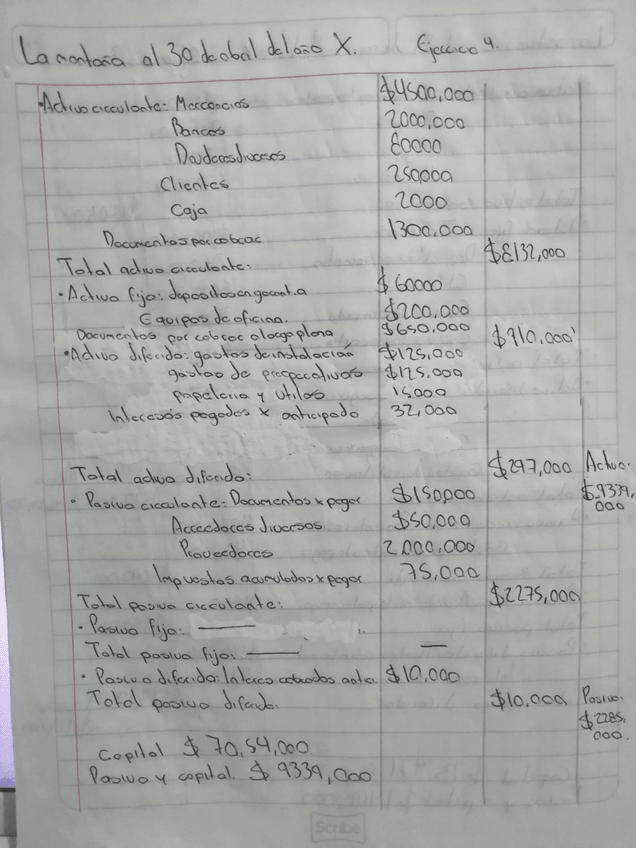 La montaña al 30 de abril del año X. Ejercicio 4.
• Activo circulante: Mercancias $4500,000
Bancos 2000,000
Deudores diversos 80000
Clientes 250,000
Caja 2000
Documentos por cobrar 1300,000
Total activo circulante: $8132,000
• Activo fijo: depositos en garantia $60000
Equipos de oficina. $200,000
Documentos por cobrar a largo plazo $650,000 $910,000
• Activo diferido: gastos de instalación $125,000
gastos de preoperativos $125,000
papeleria y utiles 15000
Intereses pagados x anticipado 32,000
Total activo diferido: $297,000 Activo:
• Pasivo circulante: Documentos x pagar $150,000 $9339,
000
Acreedores diversos $50,000
Proveedores 2000,000
Impuestos acumulados x pagar 75,000
Total pasivo circulante: $2275,000
• Pasivo fijo: ——
Total pasivo fijo: —— —
• Pasivo diferido: Interes cobrados antic. $10,000
Total pasivo diferido. $10,000 Pasivo:
$2285,
000.
Capital $ 70,54,000.
Pasivo y capital. $ 9339,000
Scribe